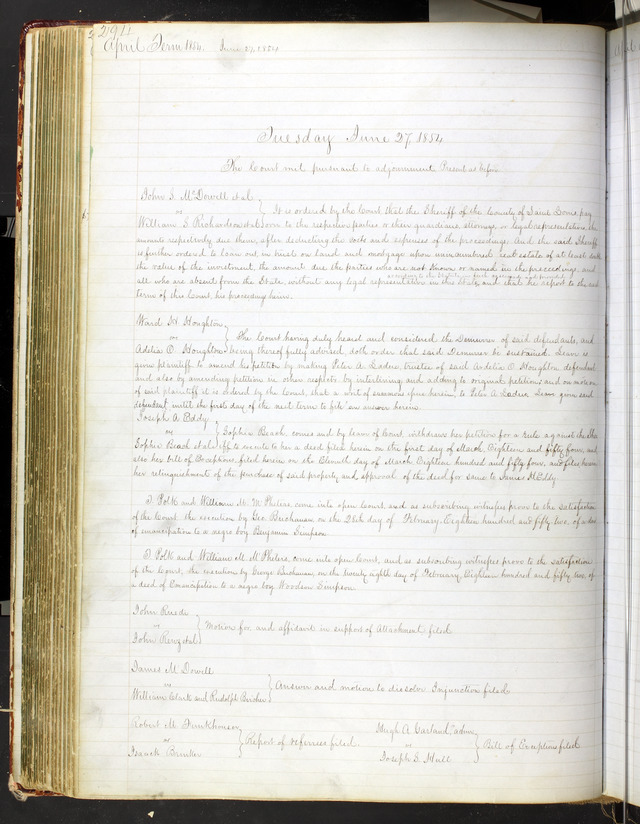 294
April Term 1854. June 27, 1854
Tuesday June 27, 1854
The Court met pursuant to adjournment Present as before
John S. McDowell et al
vs
William S. Richardson et al
It is ordered by the Court that the Sheriff of the County of Saint Louis, pay
over to the respective parties or their guardians attorneys, or legal representatives the
amounts respectively due them, after deducting the costs and expenses of the proceedings. And the said Sheriff
is further ordered to loan out, in trust on land and mortgage upon unincumbered real estate of at least double
the value of the investment the amount due the parties who are not known or named in the proceedings, and
all who are absent from the State without any legal representative in this State, and that he report to the next
term of this Court, his proceedings herein.
Ward H. Houghton
vs
Adelia O. Houghton
The Court having duly heard and considered the Demurrer of said defendants, and
being thereof fully advised, doth order that said Demurrer be sustained. Leave is
given plaintiff to amend his petition by making Peter A. Ladue, trustee of said Adelia O. Houghton defendant
and also by amending petition in other respects by interlining and adding to original petition and on motion
of said plaintiff it is ordered by the Court, that a writ of summons issue herein, to Peter A. Ladue Leave given said
defendant until the first day of the next term to file an answer herein.
Joseph A. Eddy
vs
Sophia Beach et al
Sophia Beach, comes and by leave of Court withdraws her petition for a rule against the Sheriff
to execute to her a deed filed herein on the first day of March, Eighteen and fifty four, and
also her bill of Exceptions filed herein on the Eleventh day of March, Eighteen hundred and fifty four, and files herein
her relinquishments of the purchase of said property and approval of the deed for same to James M Eddy
T. Polk and William M. McPheters came into open Court, and as subscribing witnesses prove to the satisfaction
of the Court the execution by Geo. Buchanan on the 28th day of February, Eighteen hundred and fifty two, of a deed
of emancipation to a negro boy Benjamin Simpson
T. Polk and William M. McPheters, came into open Court, and as subscribing witnesses prove to the satisfaction
of the Court, the execution by George Buchanan, on the twenty eighth day of February, Eighteen hundred and fifty two, of
a deed of Emancipation to a negro boy Woodson Simpson
John Ruedi
vs
John Renz et al
Motion for and affidavit in support of Attachment filed
James McDowell
vs
William Clark and Rudolph Bircher
Answer and motion to dissolve Injunction filed
Robert M. Funkhouser
vs
Isaack Brinker
Report of referees filed
Hugh A. Garland, admr
vs
Joseph S. Hull
Bill of Exceptions filed